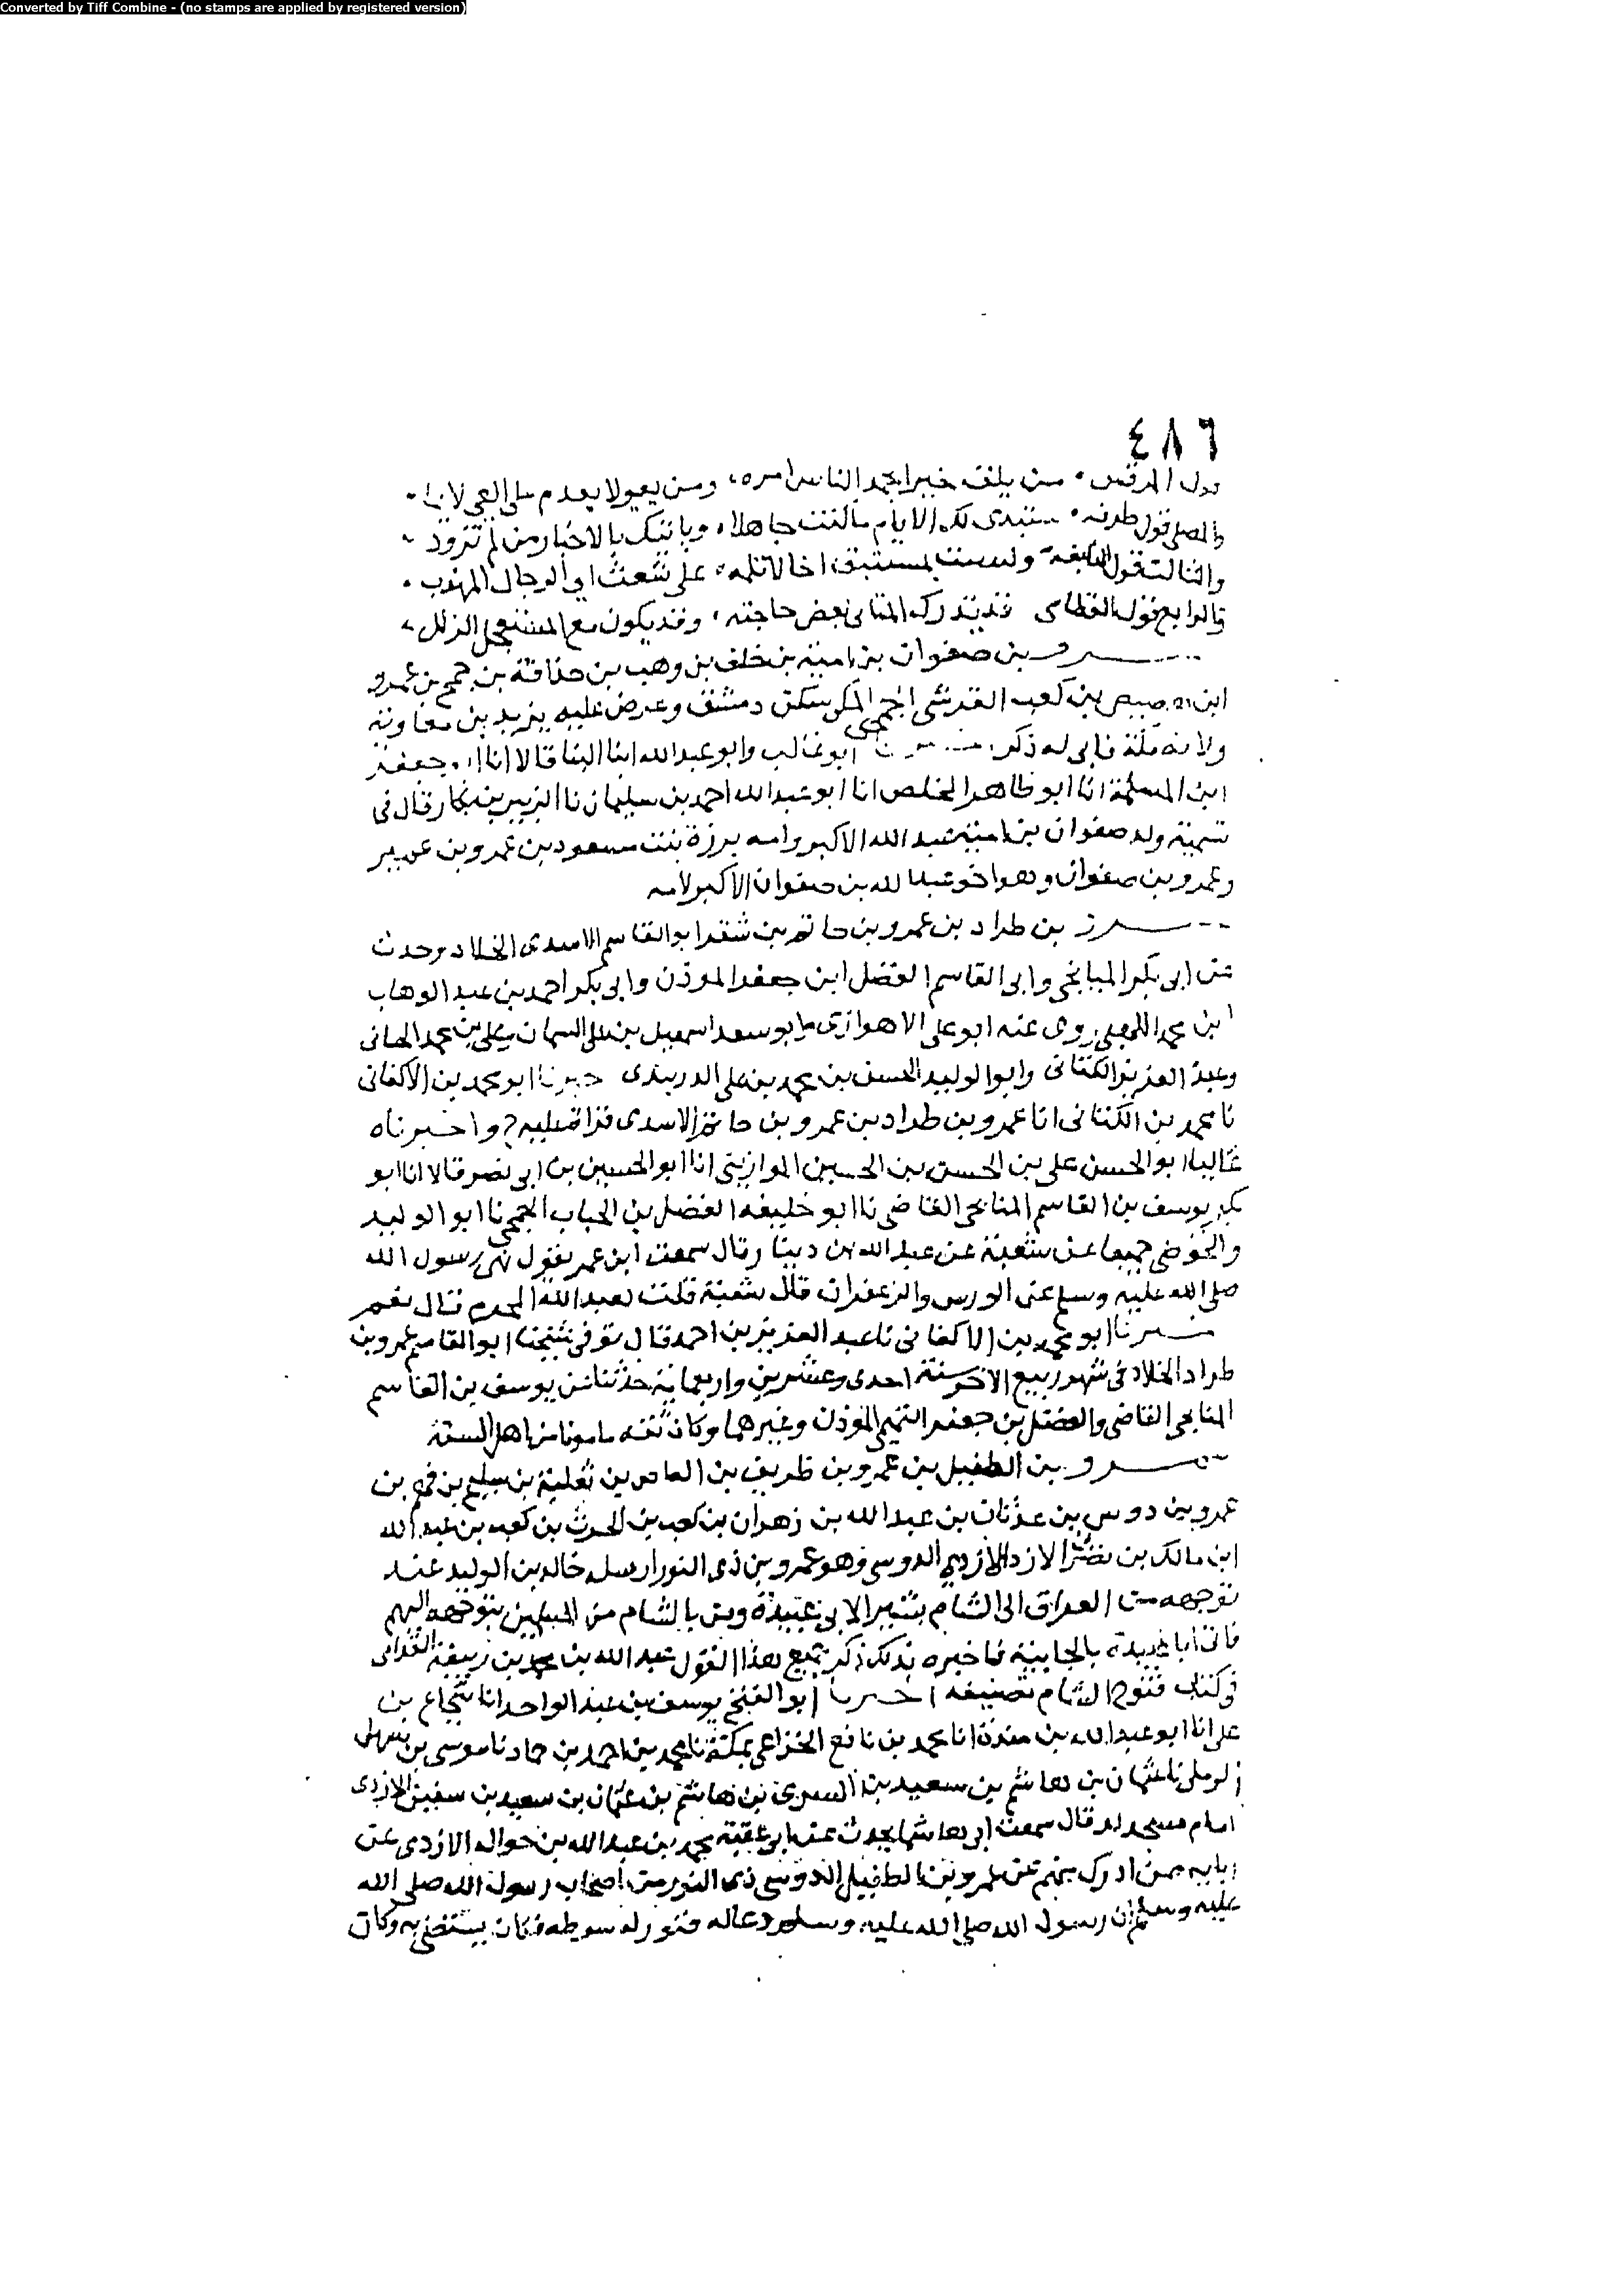 Converted by Tiff Combine - (no stamps are applied by registered version)
٤٨٦
المرقس من يلق خيرا يحمد الناس امره ومن يغو لا يعدم على الغي لائما
قول طرفه ستبدى لك الايام ما كنت جاهلا وياتيك بالاخبار من لم تزود
والثالث قول النابغة ولست بمستبق اخا لا تلمه على شعث اي الرجال المهذب
والرابع قول القطامى قد يدرك المتانى بعض حاجته وقد يكون مع المستعجل الزلل
بن صفوان بن امية بن خلف بن وهب بن حذافة بن جمح بن عمرو
ابن هصيص بن كعب القرشى الجمحى المكى سكن دمشق وعرض عليه يزيد بن معاوية
ولاية فابى له ذكر ابو غالب وابو عبد الله ابنا البنا قالا انا ابو جعفر
ابن المسلمة انا ابو طاهر المخلص انا ابو عبد الله احمد بن سليمان نا الزبير بن بكار قال فى
تسمية ولد صفوان بن امية عبد الله الاكبر وامه برزة بنت مسعود بن عمرو بن عمير
وعمرو بن صفوان وهو اخو عبد الله بن صفوان الاكبر لامه
بن طراد بن عمرو بن حاتم بن شقر ابو القاسم الاسدى الخلاد حدث
عن ابى بكر الميانجى وابى القاسم الفضل ابن جعفر الموذن وابى بكر احمد بن عبد الوهاب
ابن محمد اللهبى روى عنه ابو على الاهوازى وابو سعد اسمعيل بن على السمان وعلى بن محمد الحنائى
وعبد العزيز الكتانى وابو الوليد الحسن بن محمد بن على الدربندى ابو محمد بن الاكفانى
نا محمد بن الكتانى انا عمرو بن طراد بن عمرو بن حاتم الاسدى قراة عليه ح واخبرناه
عاليا ابو الحسن على بن الحسن بن الحسين الموازينى انا ابو الحسين بن ابى نصر قالا انا ابو
بكر يوسف بن القاسم الميانجى القاضى نا ابو خليفه الفضل بن الحباب الجمحى نا ابو الوليد
والحوضى جميعا عن شعبة عن عبد الله بن دينار قال سمعت ابن عمر يقول نهى رسول الله
صلى الله عليه وسلم عن الورس والزعفران قال شعبة قلت لعبد الله المحرم قال نعم
ابو محمد بن الاكفانى نا عبد العزيز بن احمد قال توفى شيخنا ابو القاسم عمرو بن
طراد الخلاد فى شهر ربيع الاخر سنة احدى وعشرين واربعماية حدثنا عن يوسف بن القاسم
الميانجى القاضى والفضل بن جعفر التميمى الموذن وغيرهما وكان ثقه مامونا من اهل السنة
بن الطفيل بن عمرو بن طريف بن العاص بن ثعلبة بن سليم بن فهم بن
عمرو بن دوس بن عدثان بن عبد الله بن زهران بن كعب بن الحرث بن كعب بن عبد الله
ابن مالك بن نصر الازد الازدى الدوسى وهو عمرو بن ذى النور ارسله خالد بن الوليد عند
توجهه من العراق الى الشام بشيرا الى ابى عبيدة ومن بالشام من المسلمين بتوجهه اليهم
فاتى ابا عبيدة بالجابية فاخبره بذلك ذكر جميع هذا القول عبد الله بن محمد بن ربيعة القدامى
فى كتاب فتوح الشام تصنيفه اخبرنا ابو الفتح يوسف بن عبد الواحد انا شجاع بن
على انا ابو عبد الله بن مندة انا محمد بن نافع الخزاعى بمكة نا محمد بن احمد بن حماد نا موسى بن سهل
الرملى نا عثمان بن هاشم بن سعيد بن السرى بن هاشم بن عثمان بن سعيد بن سفين الازدى
امام مسجد لد قال سمعت ابى هاشما يحدث عن ابى عقبة محمد بن عبد الله بن حواله الازدى عن
ابايه ممن ادرك منهم عن عمرو بن الطفيل الدوسى ذى النور من اصحاب رسول الله صلى الله
عليه وسلم ان رسول الله صلى الله عليه وسلم دعا له فنور له سوطه فكان يستضى به وكان